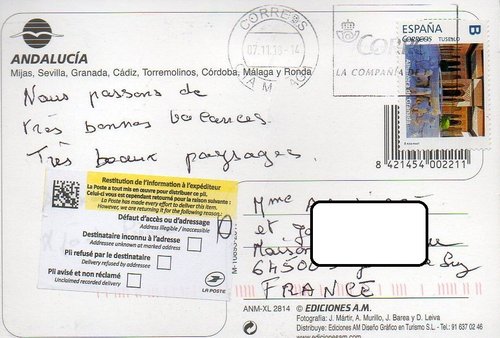 ANDALUCÍA
Mijas, Sevilla, Granada, Cádiz, Torremolinos, Córdoba, Málaga y Ronda
CORREOS
07.11.13-14
MA
Correos
LA COMPAÑÍA DE
ESPAÑA
Correos TUSELLO
B
8 421454 002211
Nous passons de
très bonnes vacances.
Très beaux paysages.
Restitution de l'information à l'expéditeur
La Poste a tout mis en œuvre pour distribuer ce pli.
Celui-ci vous est cependant retourné pour la raison suivante :
La Poste has made every effort to deliver this item.
However, we are returning it for the following reason:
Défaut d'accès ou d'adressage
Address illegible / inaccessible
Destinataire inconnu à l'adresse
Addressee unknown at marked address
Pli refusé par le destinataire
Delivery refused by addressee
Pli avisé et non réclamé
Unclaimed recorded delivery
LA POSTE
Mme
et
Maison
64500
FRANCE
ANM-XL 2814
© EDICIONES A.M.
Fotografía: J. Mártir, A. Murillo, J. Barea y D. Leiva
Distribuye: Ediciones AM Diseño Gráfico en Turismo S.L. - Tel.: 91 637 02 46
www.edicionesam.com